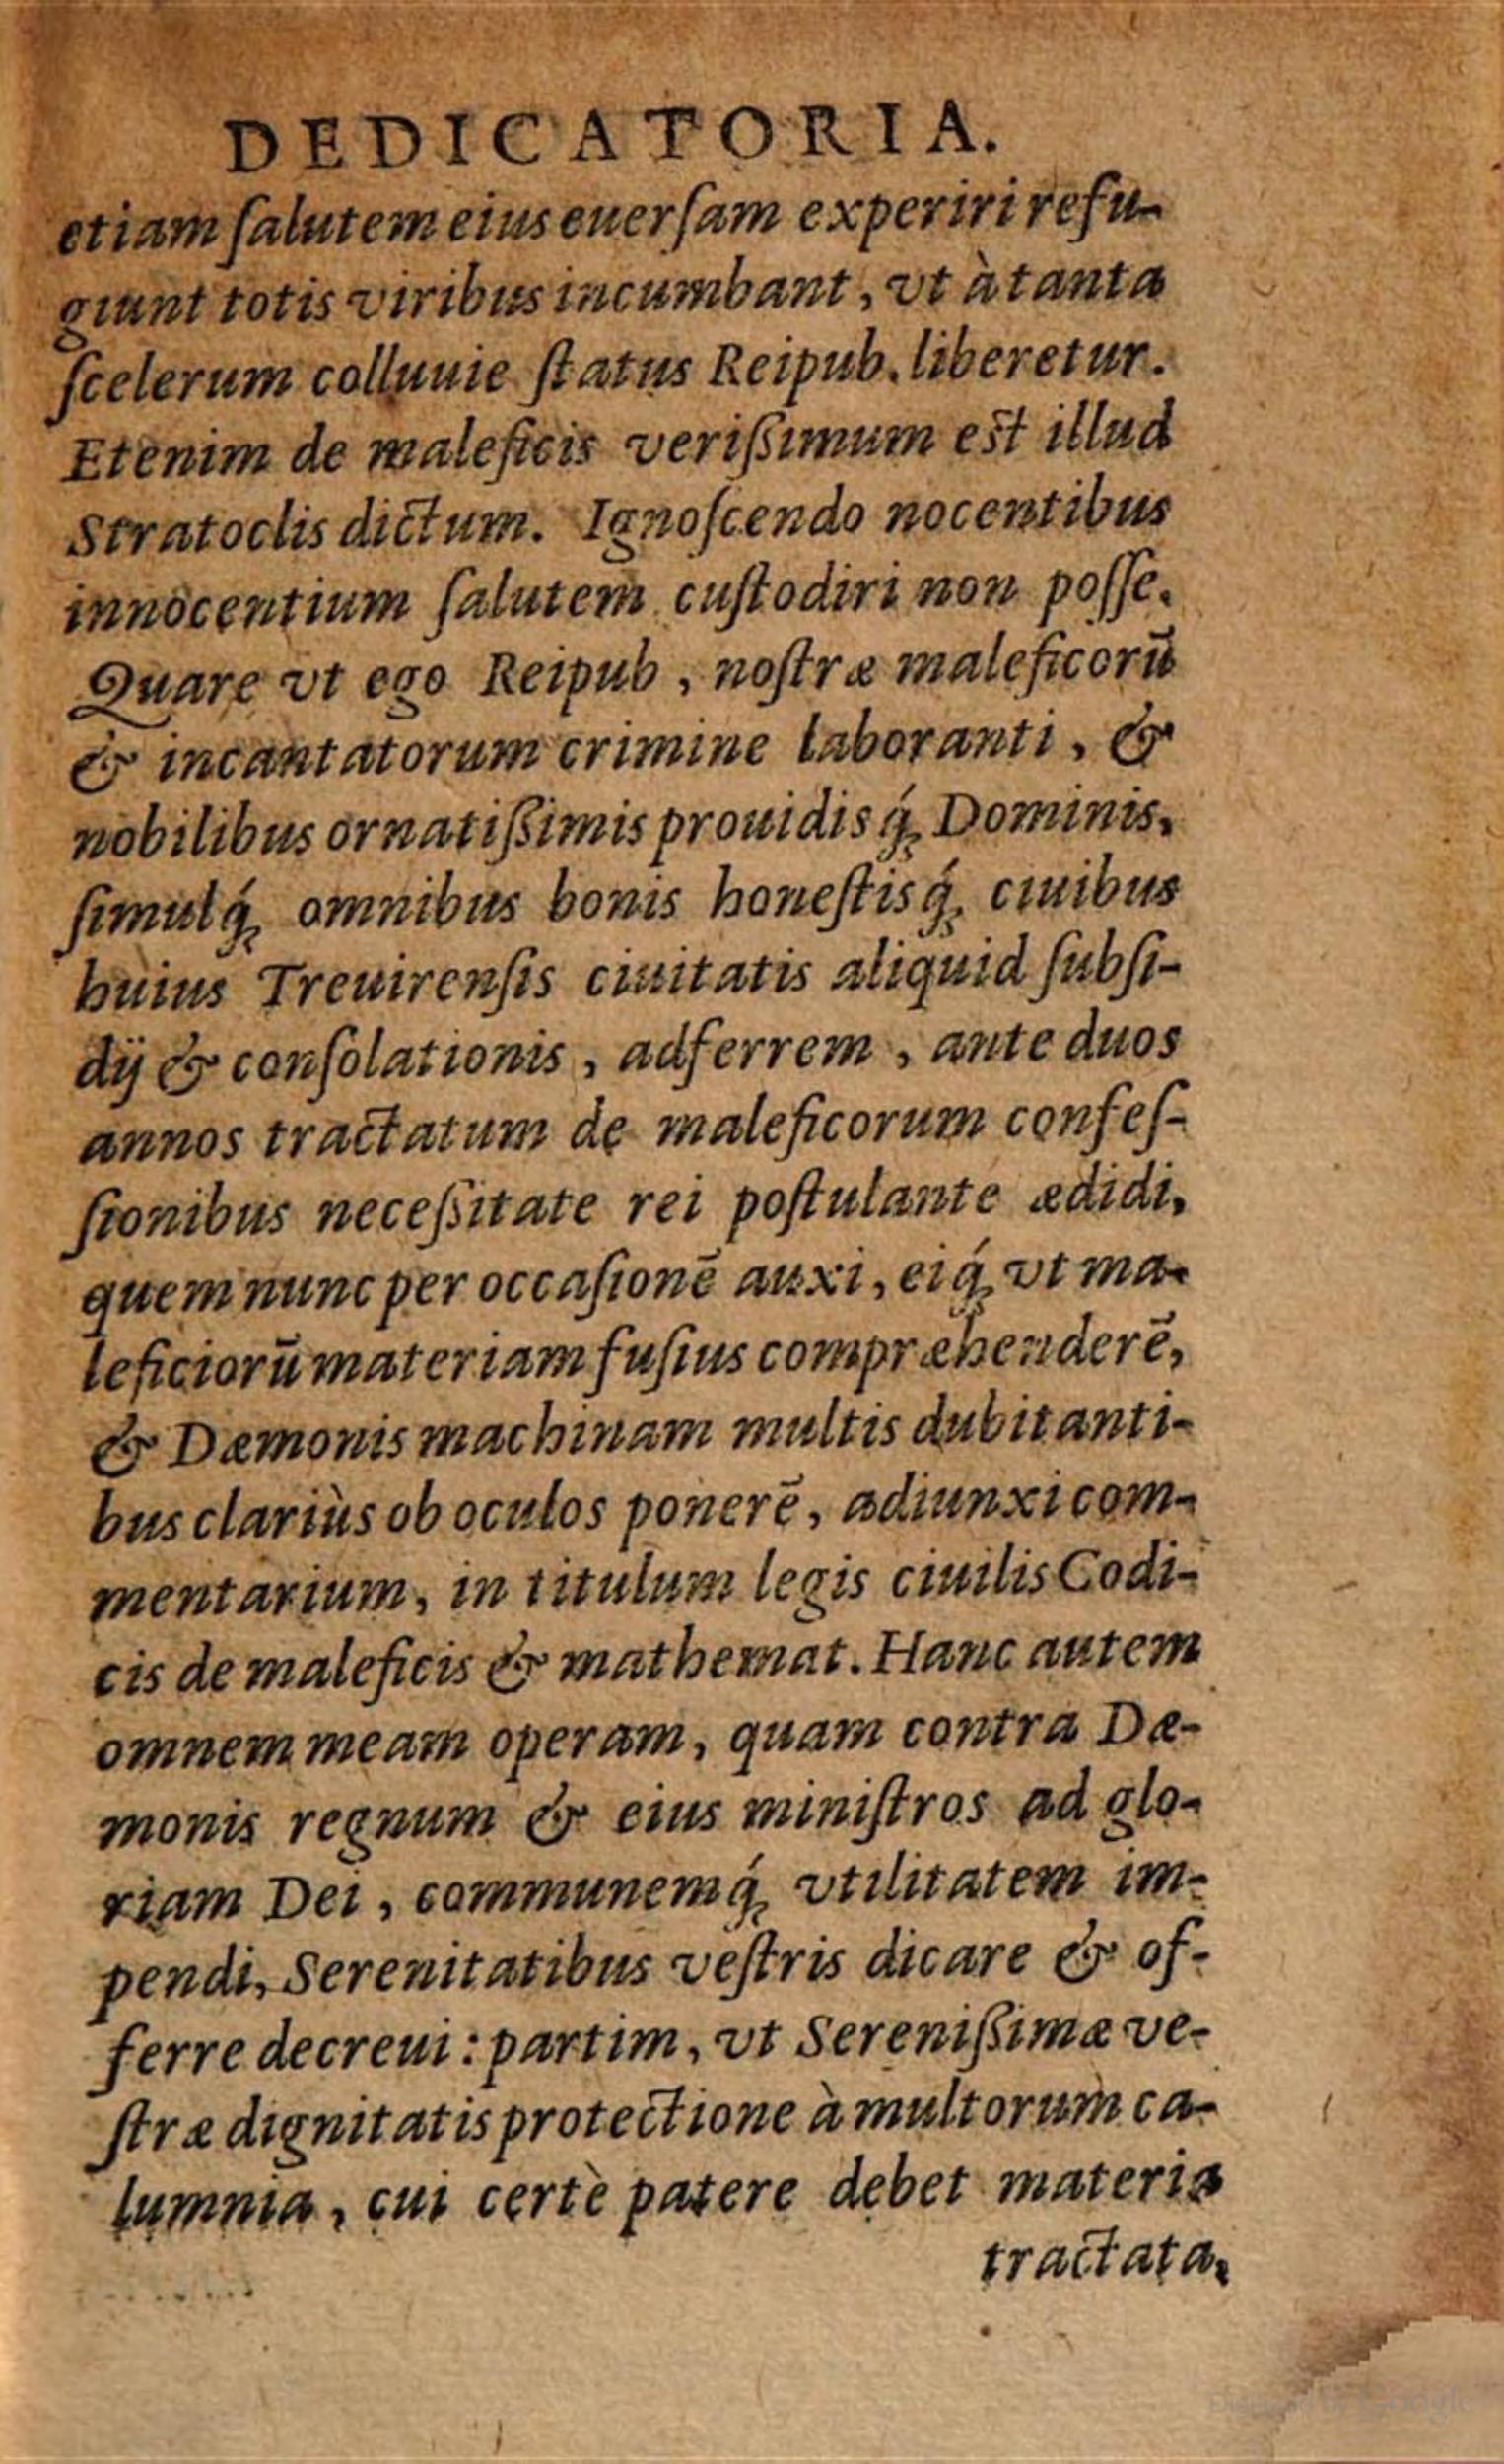 DEDICATORIA.
etiam ſalutem eius euerſam experiri refu-
giunt totis viribus incumbant, vt à tanta
ſcelerum colluuie ſtatus Reipub. liberetur.
Etenim de maleficis verißimum est illud
Stratoclis dictum. Ignoſcendo nocentibus
innocentium ſalutem custodiri non poſſe.
Quare vt ego Reipub, noſtræ maleficorũ
& incantatorum crimine laboranti, &
nobilibus ornatißimis prouidisq́; Dominis,
ſimulq́; omnibus bonis honeſtisq́; ciuibus
huius Treuirenſis ciuitatis aliquid ſubſi-
dij & conſolationis, adferrem, ante duos
annos tractatum de maleficorum confeſ-
ſionibus neceßitate rei poſtulante ædidi,
quem nunc per occaſionẽ auxi, eiq́; vt ma-
leficiorũ materiam fuſius compræhenderẽ,
& Dæmonis machinam multis dubitanti-
bus clariùs ob oculos ponerẽ, adiunxi com-
mentarium, in titulum legis ciuilis Codi-
cis de maleficis & mathemat. Hanc autem
omnem meam operam, quam contra Dæ-
monis regnum & eius miniſtros ad glo-
riam Dei, communemq́; vtilitatem im-
pendi, Serenitatibus veſtris dicare & of-
ferre decreui: partim, vt Serenißimæ ve-
ſtræ dignitatis protectione à multorum ca-
lumnia, cui certè patere debet materia
tractata,